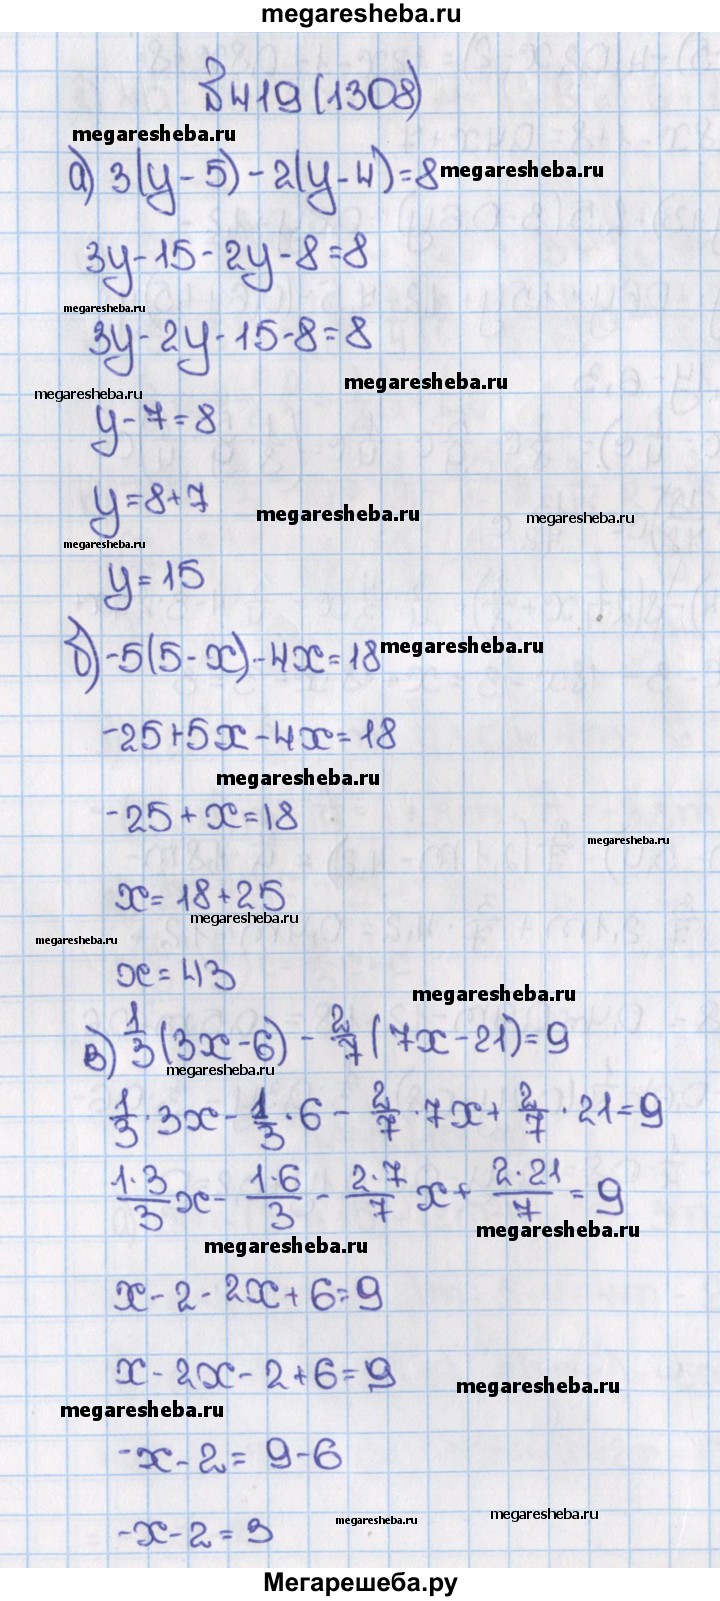 megaresheba.ru
№419 (1308)
megaresheba.ru
а) 3(y-5)-2(y-4)=8 megaresheba.ru
3y-15-2y-8=8
megaresheba.ru
3y-2y-15-8=8
megaresheba.ru
megaresheba.ru
y-7=8
y=8+7
megaresheba.ru
megaresheba.ru
megaresheba.ru
y=15
б) -5(5-x)-4x=18 megaresheba.ru
-25+5x-4x=18
megaresheba.ru
-25+x=18
megaresheba.ru
x=18+25
megaresheba.ru
megaresheba.ru
x=43
megaresheba.ru
в) 1/3(3x-6) - 2/7(7x-21)=9
megaresheba.ru
1/3·3x - 1/3·6 - 2/7·7x + 2/7·21=9
1·3/3x - 1·6/3 - 2·7/7x + 2·21/7 = 9
megaresheba.ru
megaresheba.ru
x-2-2x+6=9
megaresheba.ru
x-2x-2+6=9
megaresheba.ru
megaresheba.ru
-x-2=9-6
megaresheba.ru
megaresheba.ru
-x-2=3
Мегарешеба.ру